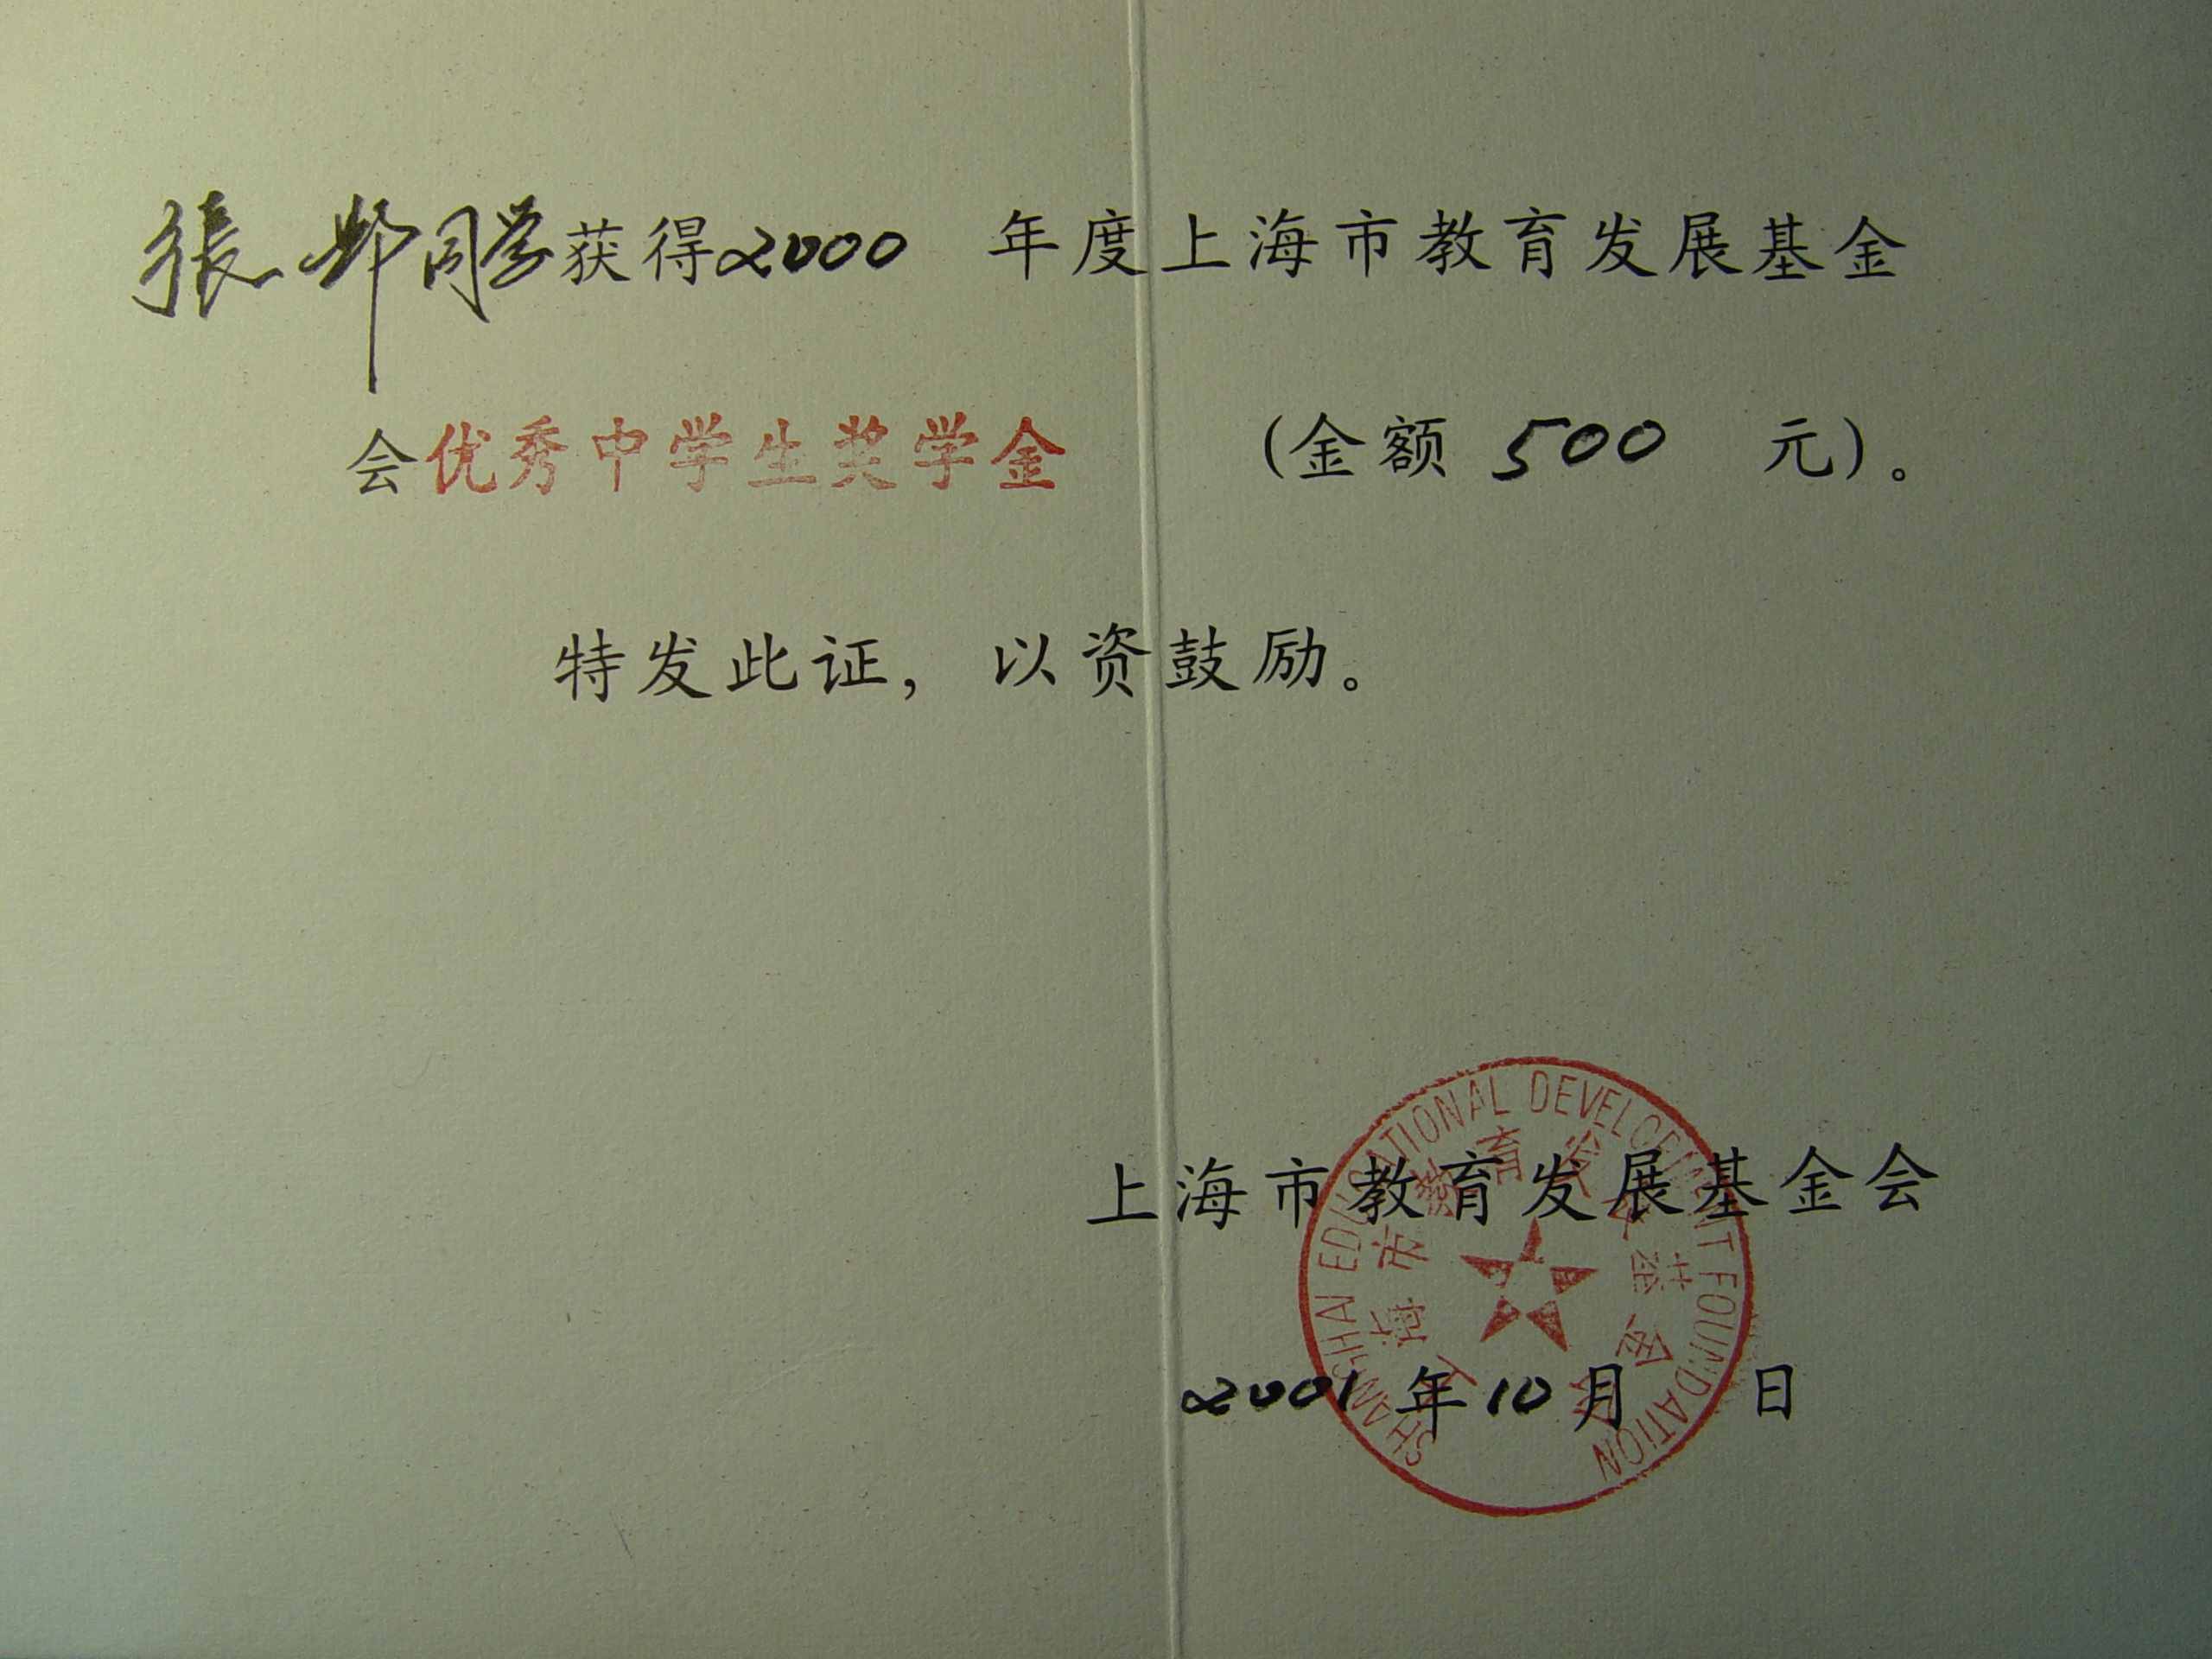 張 同学获得2000 年度上海市教育发展基金
会优秀中学生奖学金 (金额 500 元)。
特发此证，以资鼓励。
上海市教育发展基金会
2001年10月 日
SHANGHAI EDUCATIONAL DEVELOPMENT FOUNDATION
上海市教育发展基金会